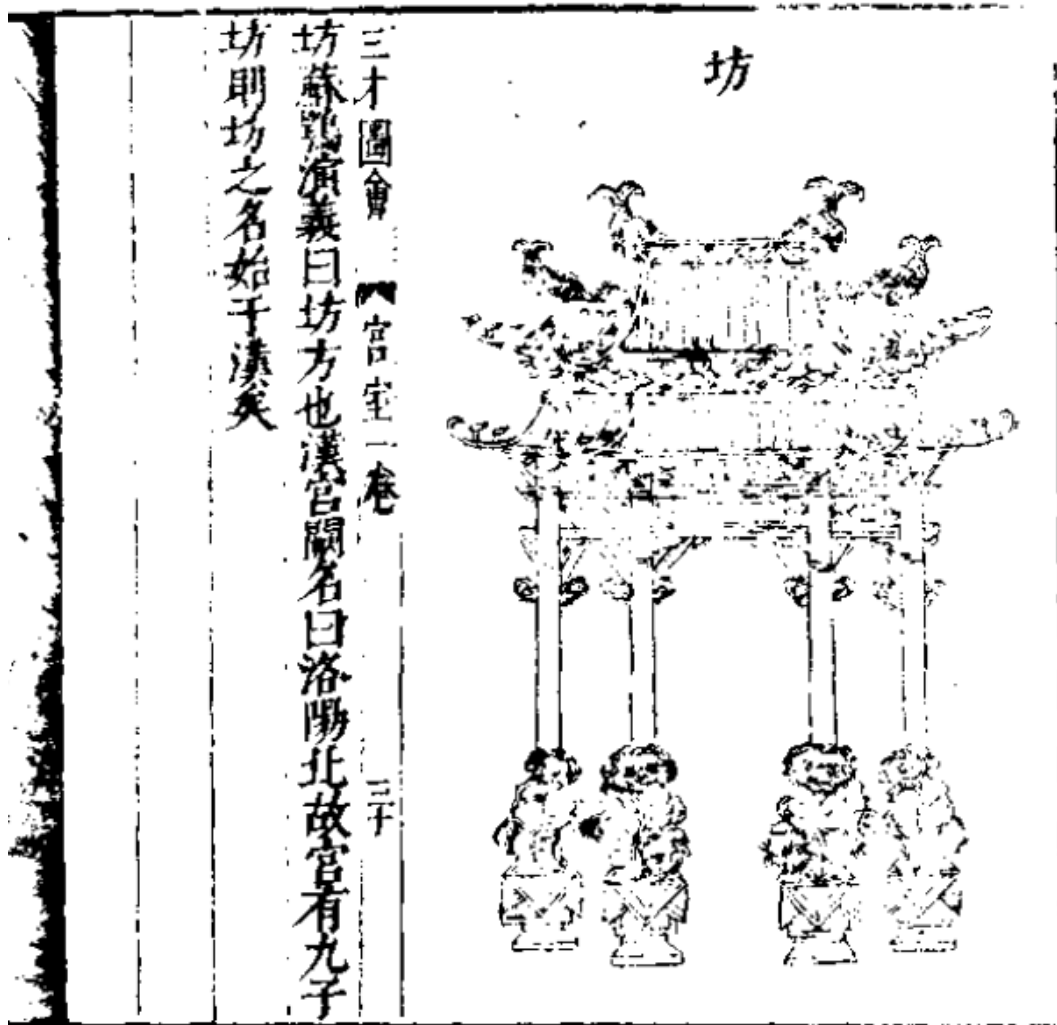 坊
三才圖會
宮室一卷
三十
坊蘇鶚演義曰坊方也漢宮闕名曰洛陽北故宮有九子
坊則坊之名始于漢矣